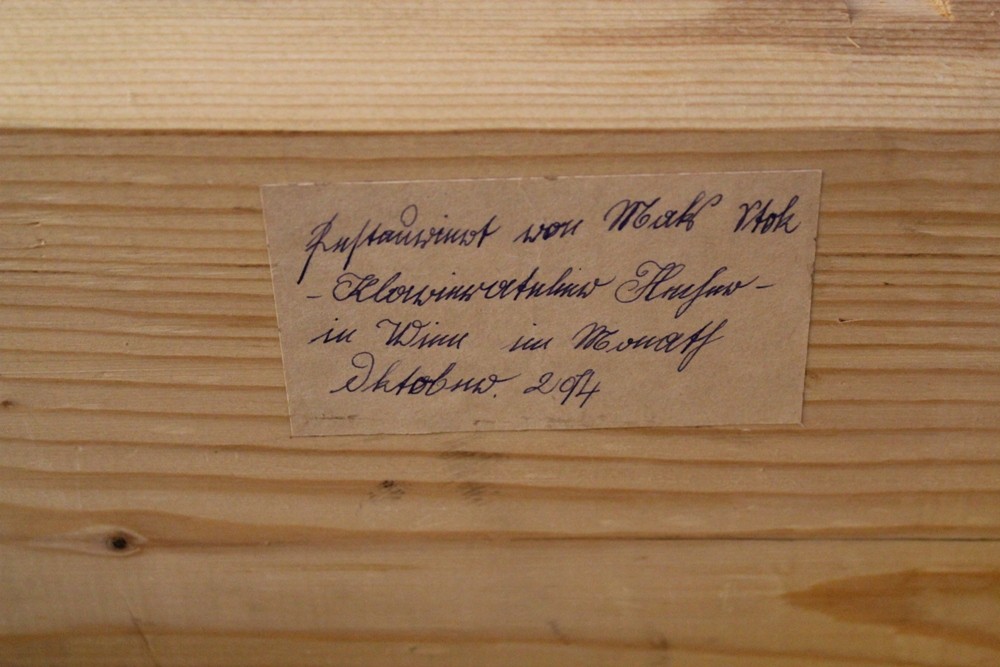 Restauriert von Maks Stok
- Klavieratelier Hecher -
in Wien im Monath
Oktober. 2014